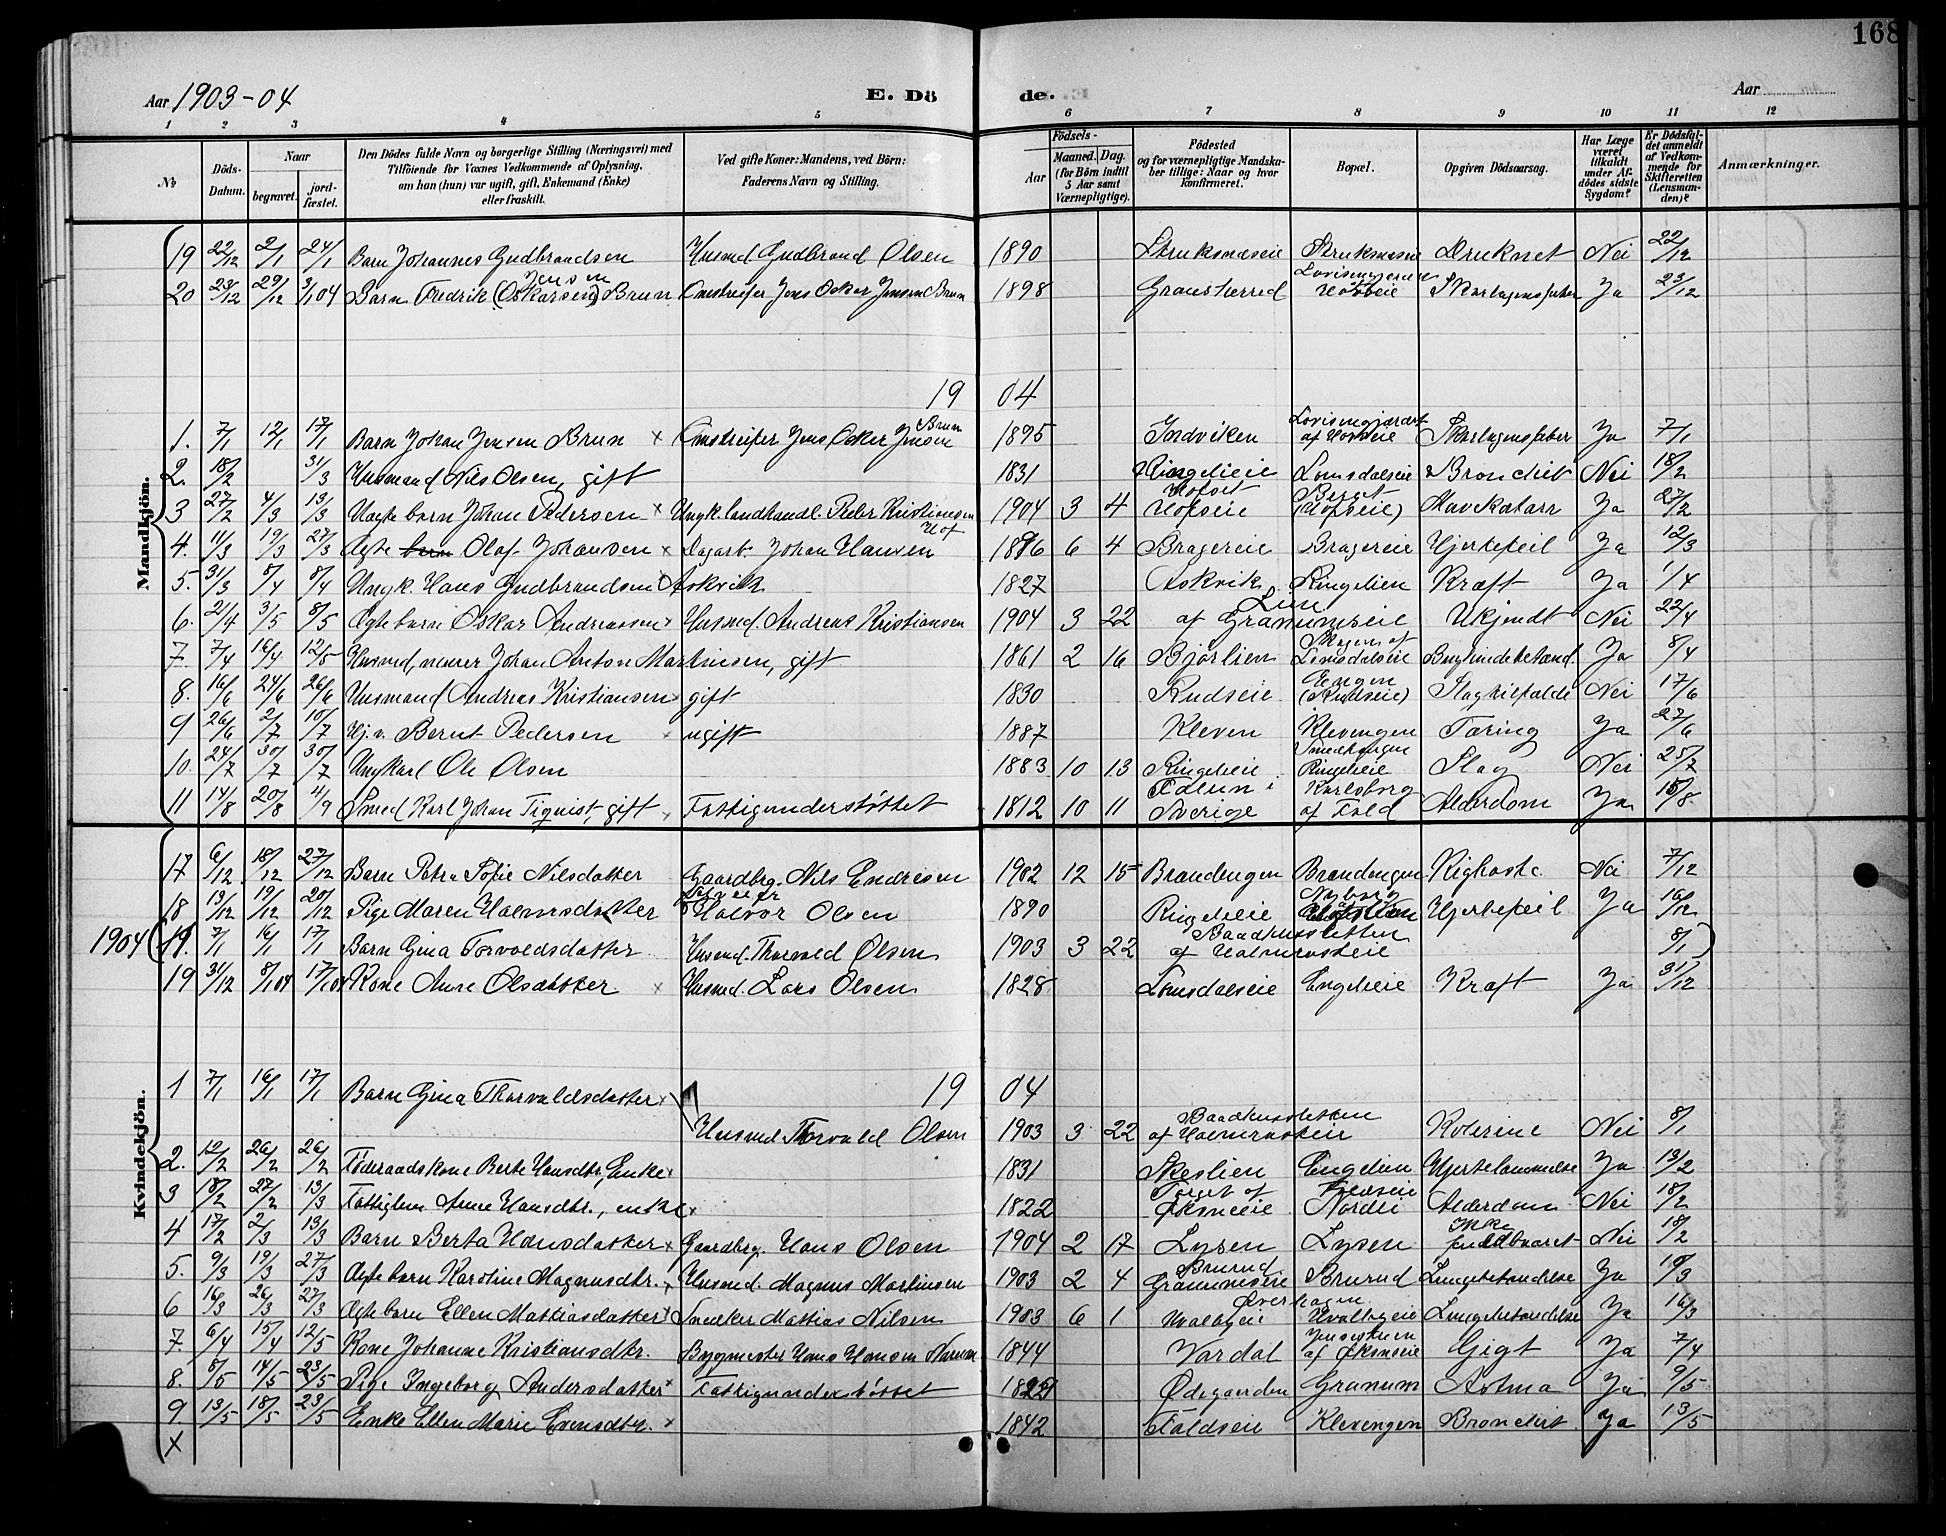 168
Aar 1903-04 E. Dö de. Aar
1 2 3 4 5 6 7 8 9 10 11 12
№ Döds-Datum. Naar begravet. jord-fæstet. Den Dödes fulde Navn og borgerlige Stilling (Næringsvei) med Tilföiende for Voxnes Vedkommende af Oplysning, om han (hun) var ugift, gift, Enkemand (Enke) eller fraskilt. Ved gifte Koner: Mandens, ved Börn: Faderens Navn og Stilling. Födsels- Aar Maaned. Dag. (for Börn indtil 5 Aar samt Værnepligtige). Födested og for værnepligtige Mandskaber tillige: Naar og hvor konfirmeret. Bopæl. Opgiven Dödsaarsag. Har Læge været tilkaldt under Afdödes sidste Sygdom? Er Dödsfaldet anmeldt af Vedkommende for Skifteretten (Lensmanden)? Anmærkninger.
Mandkjön.
19 22/12 2/1 24/1 Barn Johannes Gudbrandsen Husmd Gudbrand Olsen 1890 Struksnæseie Struksnæseie Druknet Nei 22/12
20 23/12 29/12 3/1 04 Barn Fredrik (Oskarsen) Jensen Brun Omstreifer Jens Oskar Jensen Brun 1898 Gransherred Skarlagensfeber Ja 23/12
19 04
1. 7/1 12/1 17/1 Barn Johan Jensen Brun x Omstreifer Jens Oskar Jensen Brun 1895 Indviken Skarlagensfeber Ja 7/1
2. 18/2 31/3 Husmand Nils Olsen, gift 1831 Ringelieie Lomsdalseie Bronchit Nei 18/2
3 27/2 4/3 13/3 Uægte barn Johan Pedersen x Ungk. landhandl. Peder Kristiansen Hof 1904 3 4 Hofseie (Hofseie) Mavekatarr Ja 27/2
4. 11/3 19/3 27/3 Ægte Olaf Johansen x Dagarb. Johan Hansen 1886 6 4 Bragereie Bragereie Hjertefeil Ja 12/3
5. 31/3 8/4 8/4 Ungk. Hans Gudbrandsen Askvik 1827 Askvik Ringelien Kræft Ja 1/4
6. 21/4 3/5 8/5 Ægte barn Oskar Andreassen x Husmd. Andreas Kristiansen 1904 3 22 Lun af Granumseie Ukjendt Nei 22/4
7. 7/4 16/4 12/5 Husmd, murer Johan Anton Martinsen, gift 1861 2 16 Bjørlien Lomsdalseie Ja 8/4
8. 16/6 24/6 26/6 Husmand Andreas Kristiansen x gift 1830 Rudseie Engen (Rudseie) Slagtilfælde Nei 17/6
9 26/6 2/7 10/7 Hj.v. Bernt Pedersen x ugift 1887 Kleven Klevengen Tæring Ja 27/6
10. 24/7 30/7 30/7 Ungkarl Ole Olsen 1883 10 13 Ringelieie Ringelieie Slag Nei 25/7
11 14/8 20/8 4/9 Smed Karl Johan Tiquist, gift x Fattigunderstøttet 1812 10 11 Falun i Sverige Karlsborg af Fald Alderdom Ja 15/8
Kvindekjön.
17 6/12 18/12 27/12 Barn Petra Sofie Nilsdatter Gaardbrg. Nils Endresen 1902 12 15 Brandengen Brandengen Kighoste Nei 7/12
18 13/12 19/12 20/12 Pige Maren Halvorsdatter Halvor Olsen 1890 Ringelieie Nyborg Hjertefeil Ja 16/12
1904 (19. 7/1 16/1 17/1 Barn Gina Torvoldsdatter Husmd. Thorvald Olsen 1903 3 22 Baadhussletten af Holmerudseie 8/1)
19 31/12 8/1 04 17/1 04 Kone Anne Olsdatter x Husmd. Lars Olsen 1828 Lomsdalseie Engelieie Kræft Ja 31/12
19 04
1 7/1 16/1 17/1 Barn Gina Thorvaldsdatter x
Husmd Thorvald Olsen 1903 3 22 Baadhussletten af Holmerudseie Kolerine Nei 8/1
2. 12/2 26/2 26/2 Føderaadskone Berte Hansdtr, Enke x 1831 Skeslien Engelien Hjertelammelse Ja 13/2
3 18/2 27/2 13/3 Fattiglem Anne Hansdtr., enke x 1822 Nordre Alderdom Nei 18/2
4 17/2 2/3 13/3 Barn Berta Hansdatter x Gaardbrg. Hans Olsen 1904 2 17 Lysen Lysen Ikke fuldbaaret Nei 18/2
5. 9/3 19/3 27/3 Ægte barn Karoline Magnusdtr. x Husmd. Magnus Martinsen 1903 2 4 Brurud Granumseie Brurud Lungebetændelse Ja 10/3
6 16/3 26/3 27/3 Ægte barn Ellen Mattiasdatter x Snedker Mattias Nilsen 1903 6 1 Øverhagen Hvalbyeie Hvalbyeie Lungebetændelse Ja 16/3
7. 6/4 15/4 12/5 Kone Johanne Kristiansdtr. Bygmester Hans Hansen Narum 1844 Vardal af Øksneeie Gigt Ja 7/4
8. 8/5 14/5 23/5 Pige Ingeborg Andersdatter x Fattigunderstøttet Ødegaarden Granum Astma Ja 9/5
9 13/5 18/5 23/5 Enke Ellen Marie Evensdtr. x 1842 Faldseie Klevengen Bronchit Ja 13/5
x